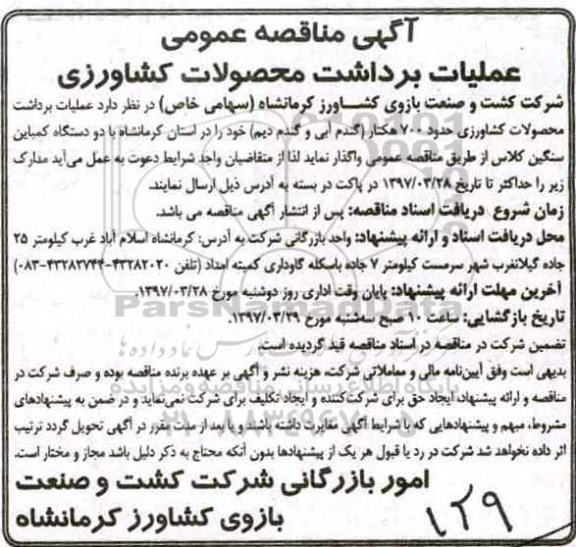 آگهی مناقصه عمومی
عملیات برداشت محصولات کشاورزی
شرکت کشت و صنعت بازوی کشاورز کرمانشاه (سهامی خاص) در نظر دارد عملیات برداشت
محصولات کشاورزی حدود ۷۰۰ هکتار (گندم آبی و گندم دیم) خود را در استان کرمانشاه با دو دستگاه کمباین
سنگین کلاس از طریق مناقصه عمومی واگذار نماید لذا از متقاضیان واجد شرایط دعوت به عمل می‌آید مدارک
زیر را حداکثر تا تاریخ ۱۳۹۷/۰۳/۲۸ در پاکت در بسته به آدرس ذیل ارسال نمایند.
زمان شروع دریافت اسناد مناقصه: پس از انتشار آگهی مناقصه می باشد.
محل دریافت اسناد و ارائه پیشنهاد: واحد بازرگانی شرکت به آدرس: کرمانشاه اسلام آباد غرب کیلومتر ۲۵
جاده گیلانغرب شهر سرمست کیلومتر ۷ جاده باسکله گاوداری کمیته امداد (تلفن ۴۳۲۸۲۰۲۰-۴۳۲۸۲۷۴۴-۰۸۳)
آخرین مهلت ارائه پیشنهاد: پایان وقت اداری روز دوشنبه مورخ ۱۳۹۷/۰۳/۲۸.
تاریخ بازگشایی: ساعت ۱۰ صبح سه‌شنبه مورخ ۱۳۹۷/۰۳/۲۹.
تضمین شرکت در مناقصه در اسناد مناقصه قید گردیده است.
بدیهی است وفق آیین‌نامه مالی و معاملاتی شرکت، هزینه نشر و آگهی بر عهده برنده مناقصه بوده و صرف شرکت در
مناقصه و ارائه پیشنهاد، ایجاد حق برای شرکت‌کننده و ایجاد تکلیف برای شرکت نمی‌نماید و در ضمن به پیشنهادهای
مشروط، مبهم و پیشنهادهایی که با شرایط آگهی مغایرت داشته باشند و یا بعد از مدت مقرر در آگهی تحویل گردد ترتیب
اثر داده نخواهد شد شرکت در رد یا قبول هر یک از پیشنهادها بدون آنکه محتاج به ذکر دلیل باشد مجاز و مختار است.
امور بازرگانی شرکت کشت و صنعت
بازوی کشاورز کرمانشاه
۱۲۹
ParsNamadData
پایگاه اطلاع رسانی مناقصه و مزایده